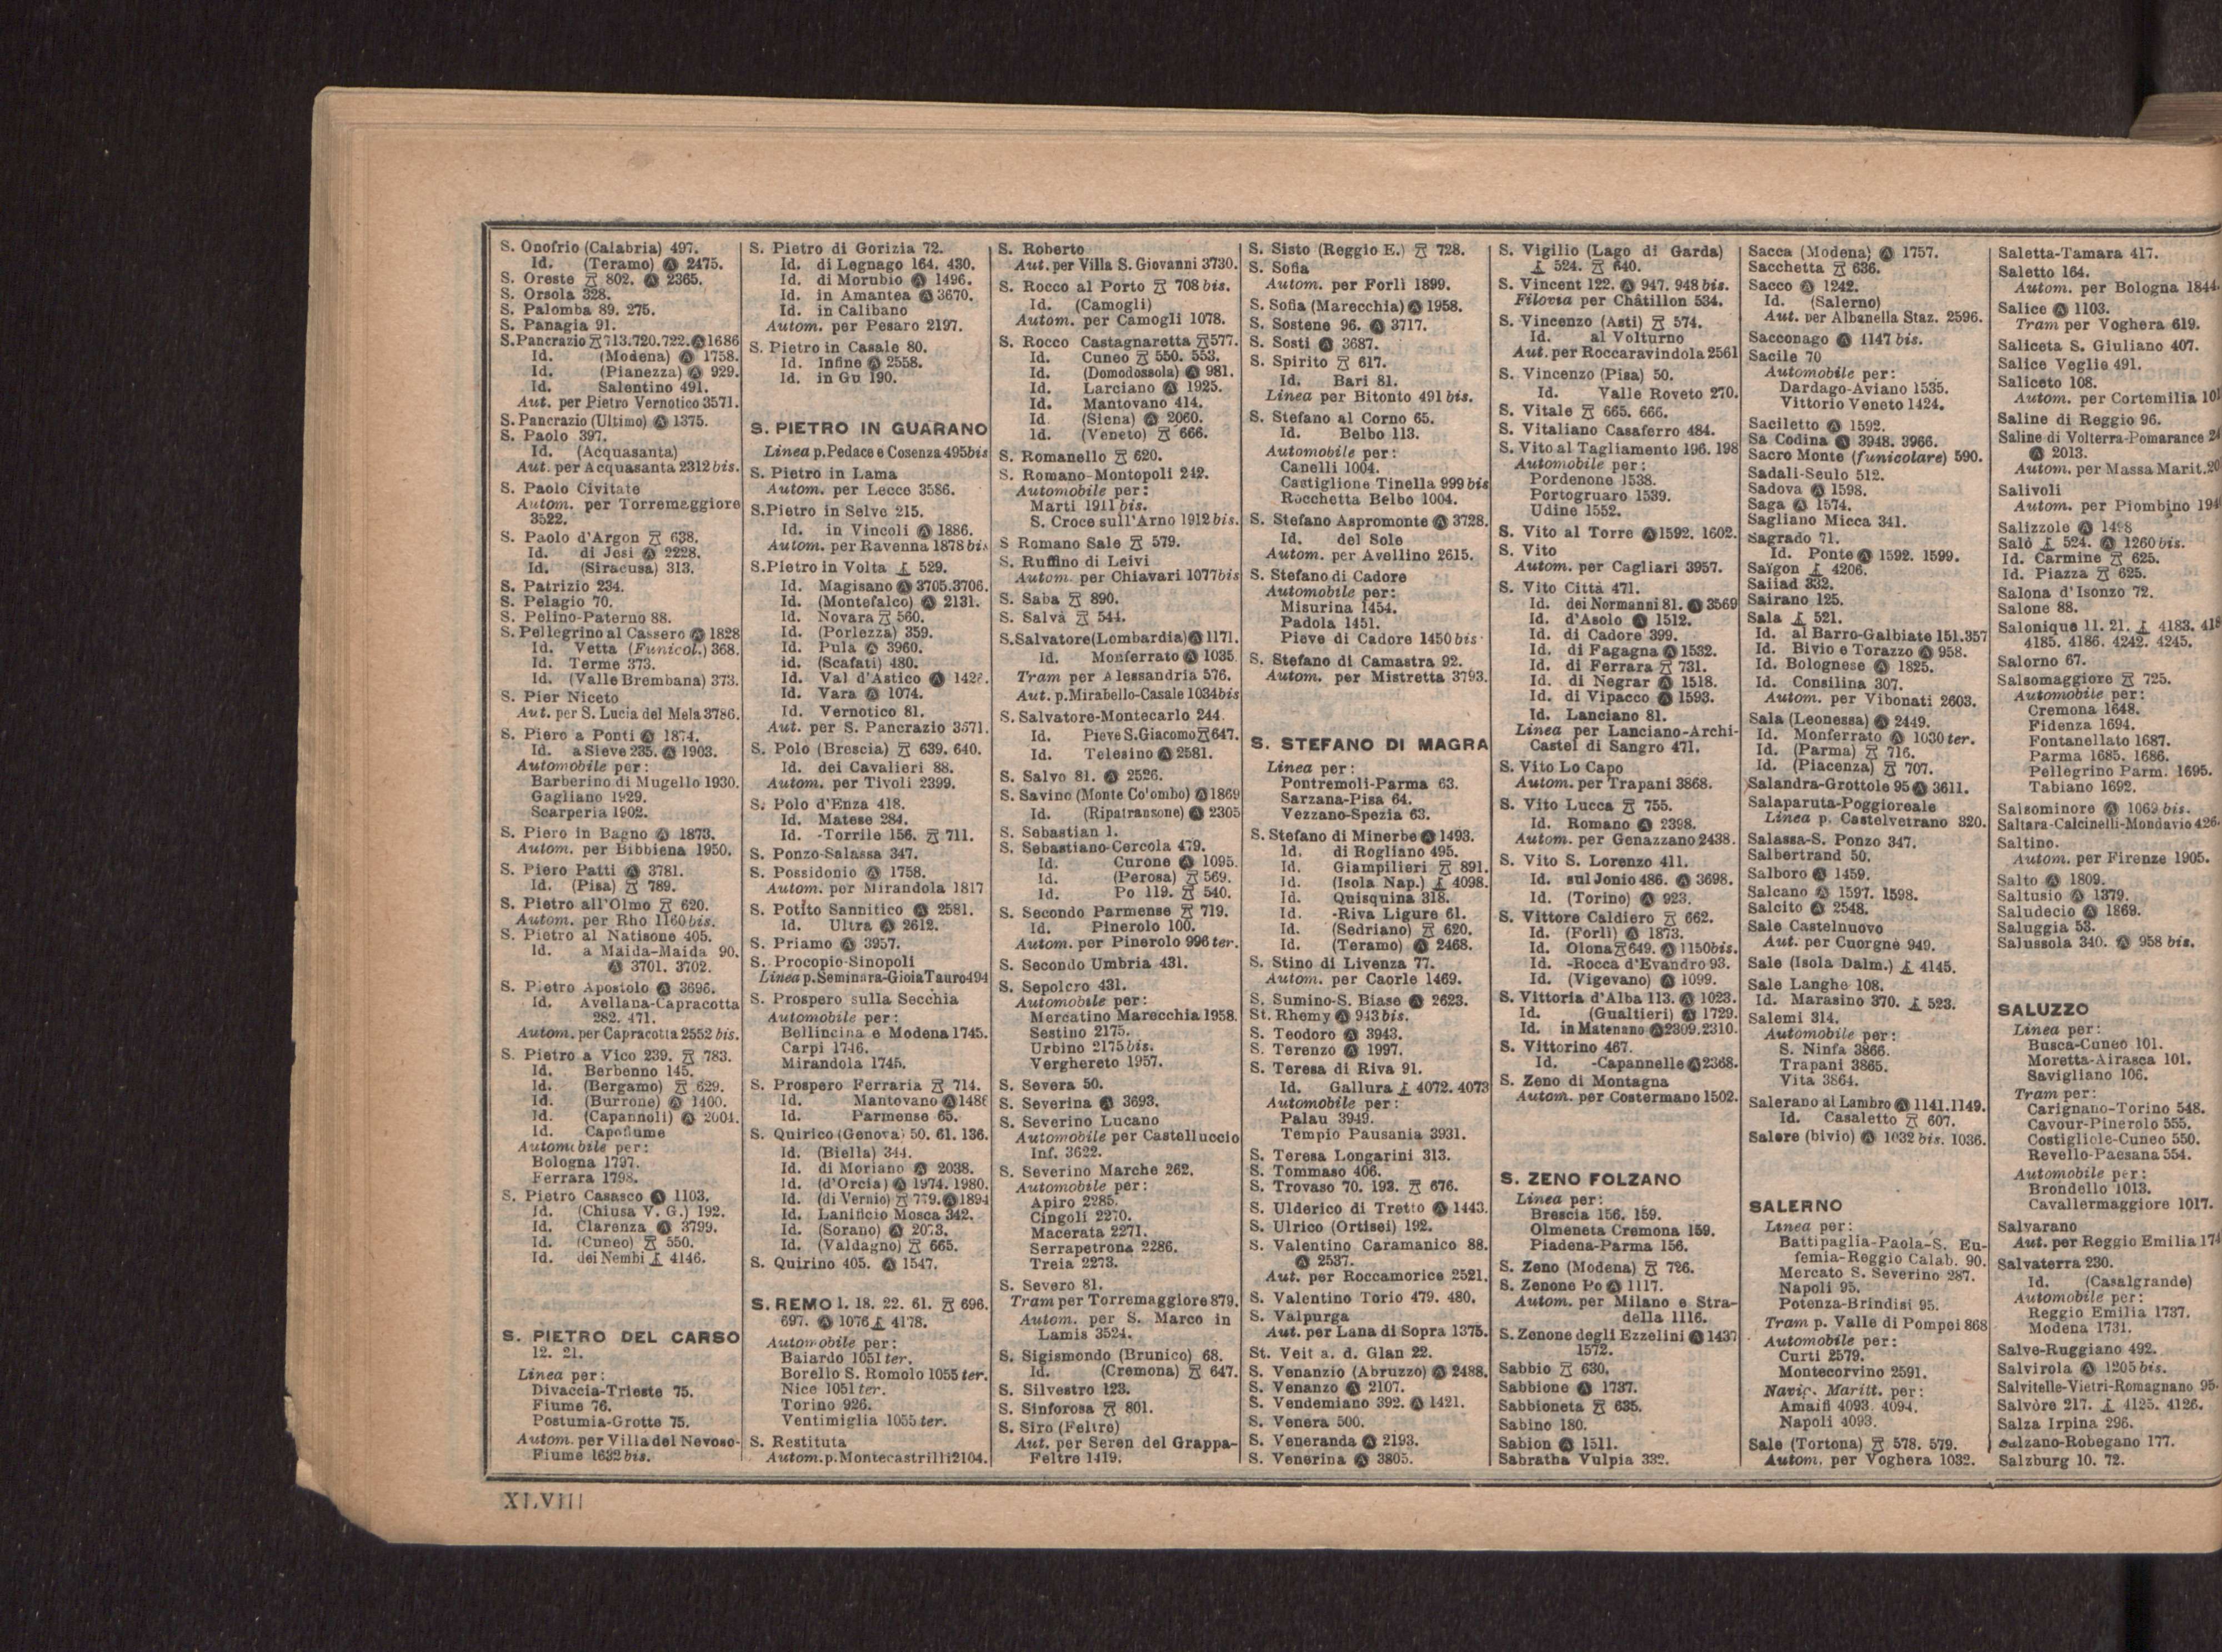 S. Onofrio (Calabria) 497.
Id. (Teramo) Ⓐ 2475.
S. Oreste 802. Ⓐ 2365.
S. Orsola 328.
S. Palomba 89. 275.
S. Panagia 91.
S. Pancrazio 713.720.722. Ⓐ 1686
Id. (Modena) Ⓐ 1758.
Id. (Pianezza) Ⓐ 929.
Id. Salentino 491.
Aut. per Pietro Vernotico 3571.
S. Pancrazio (Ultimo) Ⓐ 1375.
S. Paolo 397.
Id. (Acquasanta)
Aut. per Acquasanta 2312 bis.
S. Paolo Civitate
Autom. per Torremaggiore
3522.
S. Paolo d'Argon 638.
Id. di Jesi Ⓐ 2228.
Id. (Siracusa) 313.
S. Patrizio 234.
S. Pelagio 70.
S. Pelino-Paterno 88.
S. Pellegrino al Cassero Ⓐ 1828
Id. Vetta (Funicol.) 368.
Id. Terme 373.
Id. (Valle Brembana) 373.
S. Pier Niceto
Aut. per S. Lucia del Mela 3786.
S. Piero a Ponti Ⓐ 1874.
Id. a Sieve 235. Ⓐ 1903.
Automobile per:
Barberino di Mugello 1930.
Gagliano 1929.
Scarperia 1902.
S. Piero in Bagno Ⓐ 1873.
Autom. per Bibbiena 1950.
S. Piero Patti Ⓐ 3781.
Id. (Pisa) 789.
S. Pietro all'Olmo 620.
Autom. per Rho 1160 bis.
S. Pietro al Natisone 405.
Id. a Maida-Maida 90.
Ⓐ 3701. 3702.
S. Pietro Apostolo Ⓐ 3696.
Id. Avellana-Capracotta
282. 471.
Autom. per Capracotta 2552 bis.
S. Pietro a Vico 239. 783.
Id. Berbenno 145.
Id. (Bergamo) 629.
Id. (Burrone) Ⓐ 1400.
Id. (Capannoli) Ⓐ 2001.
Id. Capofiume
Automobile per:
Bologna 1797.
Ferrara 1798.
S. Pietro Casasco Ⓐ 1103.
Id. (Chiusa V. G.) 192.
Id. Clarenza Ⓐ 3799.
Id. (Cuneo) 550.
Id. dei Nembi 4146.
S. PIETRO DEL CARSO
12. 21.
Linea per:
Divaccia-Trieste 75.
Fiume 76.
Postumia-Grotte 75.
Autom. per Villa del Nevoso-
Fiume 1632 bis.
S. Pietro di Gorizia 72.
Id. di Legnago 164. 430.
Id. di Morubio Ⓐ 1496.
Id. in Amantea Ⓐ 3670.
Id. in Calibano
Autom. per Pesaro 2197.
S. Pietro in Casale 80.
Id. Infine Ⓐ 2558.
Id. in Gu 190.
S. PIETRO IN GUARANO
Linea p. Pedace e Cosenza 495 bis
S. Pietro in Lama
Autom. per Lecce 3586.
S. Pietro in Selve 215.
Id. in Vincoli Ⓐ 1886.
Autom. per Ravenna 1878 bis
S. Pietro in Volta 529.
Id. Magisano Ⓐ 3705.3706.
Id. (Montefalco) Ⓐ 2131.
Id. Novara 560.
Id. (Porlezza) 359.
Id. Pula Ⓐ 3960.
id. (Scafati) 480.
Id. Val d'Astico Ⓐ
Id. Vara Ⓐ 1074.
Id. Vernotico 81.
Aut. per S. Pancrazio 3571.
S. Polo (Brescia) 639. 640.
Id. dei Cavalieri 88.
Autom. per Tivoli 2399.
S. Polo d'Enza 418.
Id. Matese 284.
Id. -Torrile 156. 711.
S. Ponzo-Salassa 347.
S. Possidonio Ⓐ 1758.
Autom. per Mirandola 1817
S. Potito Sannitico Ⓐ 2581.
Id. Ultra Ⓐ 2612.
S. Priamo Ⓐ 3957.
S. Procopio-Sinopoli
Linea p. Seminara-Gioia Tauro 494
S. Prospero sulla Secchia
Automobile per:
Bellincina e Modena 1745.
Carpi 1746.
Mirandola 1745.
S. Prospero Ferraria 714.
Id. Mantovano Ⓐ 1486
Id. Parmense 65.
S. Quirico (Genova) 50. 61. 136.
Id. (Biella) 344.
Id. di Moriano Ⓐ 2038.
Id. (d'Orcia) Ⓐ 1974. 1980.
Id. (di Vernio) 779. Ⓐ 1894
Id. Lanificio Mosca 342.
Id. (Sorano) Ⓐ 2073.
Id. (Valdagno) 665.
S. Quirino 405. Ⓐ 1547.
S. REMO 1. 18. 22. 61. 696.
697. Ⓐ 1076 4178.
Automobile per:
Baiardo 1051 ter.
Borello S. Romolo 1055 ter.
Nice 1051 ter.
Torino 926.
Ventimiglia 1055 ter.
S. Restituta
Autom. p. Montecastrilli 2104.
S. Roberto
Aut. per Villa S. Giovanni 3730.
S. Rocco al Porto 708 bis.
Id. (Camogli)
Autom. per Camogli 1078.
S. Rocco Castagnaretta 577.
Id. Cuneo 550. 553.
Id. (Domodossola) Ⓐ 981.
Id. Larciano Ⓐ 1925.
Id. Mantovano 414.
Id. (Siena) Ⓐ 2060.
Id. (Veneto) 666.
S. Romanello 620.
S. Romano-Montopoli 242.
Automobile per:
Marti 1911 bis.
S. Croce sull'Arno 1912 bis.
S Romano Sale 579.
S. Ruffino di Leivi
Autom. per Chiavari 1077 bis
S. Saba 890.
S. Salvà 544.
S. Salvatore (Lombardia) Ⓐ 1171.
Id. Monferrato Ⓐ 1035
Tram per Alessandria 576.
Aut. p. Mirabello-Casale 1034 bis
S. Salvatore-Montecarlo 244.
Id. Pieve S. Giacomo 647.
Id. Telesino Ⓐ 2581.
S. Salvo 81. Ⓐ 2526.
S. Savino (Monte Co'ombo) Ⓐ 1869
Id. (Ripatransone) Ⓐ 2305
S. Sebastian 1.
S. Sebastiano-Cercola 479.
Id. Curone Ⓐ 1095.
Id. (Perosa) 569.
Id. Po 119. 540.
S. Secondo Parmense 719.
Id. Pinerolo 100.
Autom. per Pinerolo 996 ter.
S. Secondo Umbria 431.
S. Sepolcro 431.
Automobile per:
Mercatino Marecchia 1958.
Sestino 2175.
Urbino 2175 bis.
Verghereto 1957.
S. Severa 50.
S. Severina Ⓐ 3693.
S. Severino Lucano
Automobile per Castelluccio
Inf. 3622.
S. Severino Marche 262.
Automobile per:
Apiro 2285.
Cingoli 2270.
Macerata 2271.
Serrapetrona 2286.
Treia 2273.
S. Severo 81.
Tram per Torremaggiore 879.
Autom. per S. Marco in
Lamis 3524.
S. Sigismondo (Brunico) 68.
Id. (Cremona) 647.
S. Silvestro 123.
S. Sinforosa 801.
S. Siro (Feltre)
Aut. per Seren del Grappa-
Feltre 1419.
S. Sisto (Reggio E.) 728.
S. Sofia
Autom. per Forlì 1899.
S. Sofia (Marecchia) Ⓐ 1958.
S. Sostene 96. Ⓐ 3717.
S. Sosti Ⓐ 3687.
S. Spirito 617.
Id. Bari 81.
Linea per Bitonto 491 bis.
S. Stefano al Corno 65.
Id. Belbo 113.
Automobile per:
Canelli 1004.
Castiglione Tinella 999 bis
Rocchetta Belbo 1004.
S. Stefano Aspromonte Ⓐ 3728.
Id. del Sole
Autom. per Avellino 2615.
S. Stefano di Cadore
Automobile per:
Misurina 1454.
Padola 1451.
Pieve di Cadore 1450 bis
S. Stefano di Camastra 92.
Autom. per Mistretta 3793.
S. STEFANO DI MAGRA
Linea per:
Pontremoli-Parma 63.
Sarzana-Pisa 64.
Vezzano-Spezia 63.
S. Stefano di Minerbe Ⓐ 1493.
Id. di Rogliano 495.
Id. Giampilieri 891.
Id. (Isola Nap.) 4098.
Id. Quisquina 318.
Id. -Riva Ligure 61.
Id. (Sedriano) 620.
Id. (Teramo) Ⓐ 2468.
S. Stino di Livenza 77.
Autom. per Caorle 1469.
S. Sumino-S. Biase Ⓐ 2623.
St. Rhemy Ⓐ 943 bis.
S. Teodoro Ⓐ 3943.
S. Terenzo Ⓐ 1997.
S. Teresa di Riva 91.
Id. Gallura 4072. 4073
Automobile per:
Palau 3949.
Tempio Pausania 3931.
S. Teresa Longarini 313.
S. Tommaso 406.
S. Trovaso 70. 193. 676.
S. Ulderico di Tretto Ⓐ 1443.
S. Ulrico (Ortisei) 192.
S. Valentino Caramanico 88.
Ⓐ 2537.
Aut. per Roccamorice 2521.
S. Valentino Torio 479. 480.
S. Valpurga
Aut. per Lana di Sopra 1375.
St. Veit a. d. Glan 22.
S. Venanzio (Abruzzo) Ⓐ 2488.
S. Venanzo Ⓐ 2107.
S. Vendemiano 392. Ⓐ 1421.
S. Venera 500.
S. Veneranda Ⓐ 2193.
S. Venerina Ⓐ 3805.
S. Vigilio (Lago di Garda)
524. 640.
S. Vincent 122. Ⓐ 947. 948 bis.
Filovia per Châtillon 534.
S. Vincenzo (Asti) 574.
Id. al Volturno
Aut. per Roccaravindola 2561
S. Vincenzo (Pisa) 50.
Id. Valle Roveto 270.
S. Vitale 665. 666.
S. Vitaliano Casaferro 484.
S. Vito al Tagliamento 196. 198
Automobile per:
Pordenone 1538.
Portogruaro 1539.
Udine 1552.
S. Vito al Torre Ⓐ 1592. 1602.
S. Vito
Autom. per Cagliari 3957.
S. Vito Città 471.
Id. dei Normanni 81. Ⓐ 3569
Id. d'Asolo Ⓐ 1512.
Id. di Cadore 399.
Id. di Fagagna Ⓐ 1532.
Id. di Ferrara 731.
Id. di Negrar Ⓐ 1518.
Id. di Vipacco Ⓐ 1593.
Id. Lanciano 81.
Linea per Lanciano-Archi-
Castel di Sangro 471.
S. Vito Lo Capo
Autom. per Trapani 3868.
S. Vito Lucca 755.
Id. Romano Ⓐ 2398.
Autom. per Genazzano 2438.
S. Vito S. Lorenzo 411.
Id. sul Jonio 486. Ⓐ 3698.
Id. (Torino) Ⓐ 923.
S. Vittore Caldiero 662.
Id. (Forlì) Ⓐ 1873.
Id. Olona 649. Ⓐ 1150 bis.
Id. -Rocca d'Evandro 93.
Id. (Vigevano) Ⓐ 1099.
S. Vittoria d'Alba 113. Ⓐ 1023.
Id. (Gualtieri) Ⓐ 1729.
Id. in Matenano Ⓐ 2309.2310.
S. Vittorino 467.
Id. -Capannelle Ⓐ 2368.
S. Zeno di Montagna
Autom. per Costermano 1502.
S. ZENO FOLZANO
Linea per:
Brescia 156. 159.
Olmeneta Cremona 159.
Piadena-Parma 156.
S. Zeno (Modena) 726.
S. Zenone Po Ⓐ 1117.
Autom. per Milano e Stra-
della 1116.
S. Zenone degli Ezzelini Ⓐ 1437
1572.
Sabbio 630.
Sabbione Ⓐ 1737.
Sabbioneta 635.
Sabino 180.
Sabion Ⓐ 1511.
Sabratha Vulpia 332.
Sacca (Modena) Ⓐ 1757.
Sacchetta 636.
Sacco Ⓐ 1242.
Id. (Salerno)
Aut. per Albanella Staz. 2596.
Sacconago Ⓐ 1147 bis.
Sacile 70
Automobile per:
Dardago-Aviano 1535.
Vittorio Veneto 1424.
Saciletto Ⓐ 1592.
Sa Codina Ⓐ 3948. 3966.
Sacro Monte (funicolare) 590.
Sadali-Seulo 512.
Sadova Ⓐ 1598.
Saga Ⓐ 1574.
Sagliano Micca 341.
Sagrado 71.
Id. Ponte Ⓐ 1592. 1599.
Saïgon 4206.
Saiiad 332.
Sairano 125.
Sala 521.
Id. al Barro-Galbiate 151.357
Id. Bivio e Torazzo Ⓐ 958.
Id. Bolognese Ⓐ 1825.
Id. Consilina 307.
Autom. per Vibonati 2603.
Sala (Leonessa) Ⓐ 2449.
Id. Monferrato Ⓐ 1030 ter.
Id. (Parma) 716.
Id. (Piacenza) 707.
Salandra-Grottole 95 Ⓐ 3611.
Salaparuta-Poggioreale
Linea p. Castelvetrano 320.
Salassa-S. Ponzo 347.
Salbertrand 50.
Salboro Ⓐ 1459.
Salcano Ⓐ 1597. 1598.
Salcito Ⓐ 2548.
Sale Castelnuovo
Aut. per Cuorgnè 949.
Sale (Isola Dalm.) 4145.
Sale Langhe 108.
Id. Marasino 370. 523.
Salemi 314.
Automobile per:
S. Ninfa 3866.
Trapani 3865.
Vita 3864.
Salerano al Lambro Ⓐ 1141.1149.
Id. Casaletto 607.
Salere (bivio) Ⓐ 1032 bis. 1036.
SALERNO
Linea per:
Battipaglia-Paola-S. Eu-
femia-Reggio Calab. 90.
Mercato S. Severino 287.
Napoli 95.
Potenza-Brindisi 95.
Tram p. Valle di Pompei 868
Automobile per:
Curti 2579.
Montecorvino 2591.
Navig. Maritt. per:
Amalfi 4093. 4094.
Napoli 4093.
Sale (Tortona) 578. 579.
Autom. per Voghera 1032.
Saletta-Tamara 417.
Saletto 164.
Autom. per Bologna 1844.
Salice Ⓐ 1103.
Tram per Voghera 619.
Saliceta S. Giuliano 407.
Salice Veglie 491.
Saliceto 108.
Autom. per Cortemilia 101
Saline di Reggio 96.
Saline di Volterra-Pomarance 24
Ⓐ 2013.
Autom. per Massa Marit. 20
Salivoli
Autom. per Piombino 194
Salizzole Ⓐ 1498
Salò 524. Ⓐ 1260 bis.
Id. Carmine 625.
Id. Piazza 625.
Salona d'Isonzo 72.
Salone 88.
Salonique 11. 21. 4183. 418
4185. 4186. 4242. 4245.
Salorno 67.
Salsomaggiore 725.
Automobile per:
Cremona 1648.
Fidenza 1694.
Fontanellato 1687.
Parma 1685. 1686.
Pellegrino Parm. 1695.
Tabiano 1692.
Salsominore Ⓐ 1069 bis.
Saltara-Calcinelli-Mondavio 426.
Saltino.
Autom. per Firenze 1905.
Salto Ⓐ 1809.
Saltusio Ⓐ 1379.
Saludecio Ⓐ 1869.
Saluggia 53.
Salussola 340. Ⓐ 958 bis.
SALUZZO
Linea per:
Busca-Cuneo 101.
Moretta-Airasca 101.
Savigliano 106.
Tram per:
Carignano-Torino 548.
Cavour-Pinerolo 555.
Costigliole-Cuneo 550.
Revello-Paesana 554.
Automobile per:
Brondello 1013.
Cavallermaggiore 1017.
Salvarano
Aut. per Reggio Emilia 174
Salvaterra 230.
Id. (Casalgrande)
Automobile per:
Reggio Emilia 1737.
Modena 1731.
Salve-Ruggiano 492.
Salvirola Ⓐ 1205 bis.
Salvitelle-Vietri-Romagnano 95.
Salvòre 217. 4125. 4126.
Salza Irpina 296.
Salzano-Robegano 177.
Salzburg 10. 72.
XLVIII